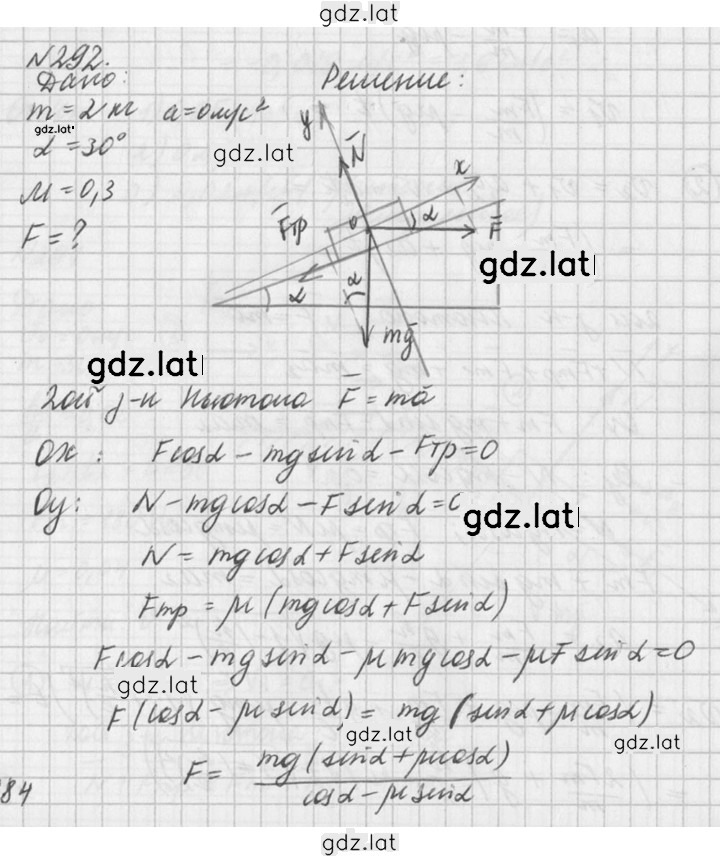 gdz.lat
№292.
Дано:
Решение:
m = 2 кг a = 0 м/с²
gdz.lat
α = 30°
gdz.lat
μ = 0,3
F = ?
y
N̄
x
F̄тр
0
α
F̄
gdz.lat
α
α
mḡ
gdz.lat
2ой з-н Ньютона F̄ = mā
Ox: Fcosα − mgsinα − Fтр = 0
Oy: N − mgcosα − Fsinα = 0
gdz.lat
N = mgcosα + Fsinα
Fтр = μ(mgcosα + Fsinα)
Fcosα − mgsinα − μmgcosα − μFsinα = 0
gdz.lat
F(cosα − μsinα) = mg(sinα + μcosα)
gdz.lat
gdz.lat
F = mg(sinα + μcosα)
cosα − μsinα
84
gdz.lat